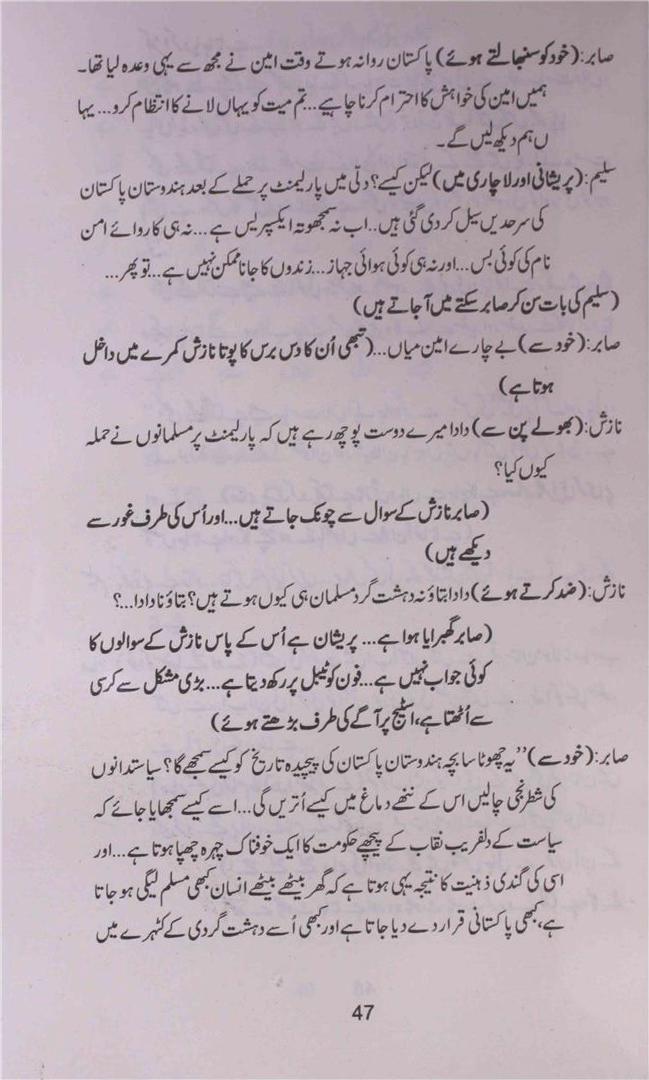 صابر:(خود کو سنبھالتے ہوئے) پاکستان روانہ ہوتے وقت امین نے مجھ سے یہی وعدہ لیا تھا۔
ہمیں امین کی خواہش کا احترام کرنا چاہیے...تم میت کو یہاں لانے کا انتظام کرو...یہا
ں ہم دیکھ لیں گے۔
سلیم:(پریشانی اور لاچاری میں)لیکن کیسے؟ دلّی میں پارلیمنٹ پر حملے کے بعد ہندوستان پاکستان
کی سرحدیں سیل کر دی گئی ہیں..اب نہ سمجھوتہ ایکسپریس ہے...نہ ہی کاروائے امن
نام کی کوئی بس...اور نہ ہی کوئی ہوائی جہاز...زندوں کا جانا ممکن نہیں ہے...تو پھر...
(سلیم کی بات سن کر صابر سکتے میں آجاتے ہیں)
صابر:(خود سے) بے چارے امین میاں...(تبھی اُن کا دس برس کا پوتا نازش کمرے میں داخل
ہوتا ہے)
نازش:(بھولے پن سے) دادا میرے دوست پوچھ رہے ہیں کہ پارلیمنٹ پر مسلمانوں نے حملہ
کیوں کیا؟
(صابر نازش کے سوال سے چونک جاتے ہیں...اور اُس کی طرف غور سے
دیکھے ہیں)
نازش:(ضد کرتے ہوئے) دادا بتاؤ نہ دہشت گرد مسلمان ہی کیوں ہوتے ہیں؟ بتاؤ نا دادا...؟
(صابر گھبرایا ہوا ہے... پریشان ہے اُس کے پاس نازش کے سوالوں کا
کوئی جواب نہیں ہے...فون کو ٹیبل پر رکھ دیتا ہے...بڑی مشکل سے کرسی
سے اُٹھتا ہے، اسٹیج پر آگے کی طرف بڑھتے ہوئے)
صابر:(خود سے)”یہ چھوٹا سا بچہ ہندوستان پاکستان کی پیچیدہ تاریخ کو کیسے سمجھے گا؟ سیاستدانوں
کی شطرنجی چالیں اس کے ننھے دماغ میں کیسے اُتریں گی...اسے کیسے سمجھایا جائے کہ
سیاست کے دلفریب نقاب کے پیچھے حکومت کا ایک خوفناک چہرہ چھپا ہوتا ہے...اور
اسی کی گندی ذہنیت کا نتیجہ یہی ہوتا ہے کہ گھر بیٹھے بیٹھے انسان کبھی مسلم لیگی ہو جاتا
ہے، کبھی پاکستانی قرار دے دیا جاتا ہے اور کبھی اُسے دہشت گردی کے کٹہرے میں
47